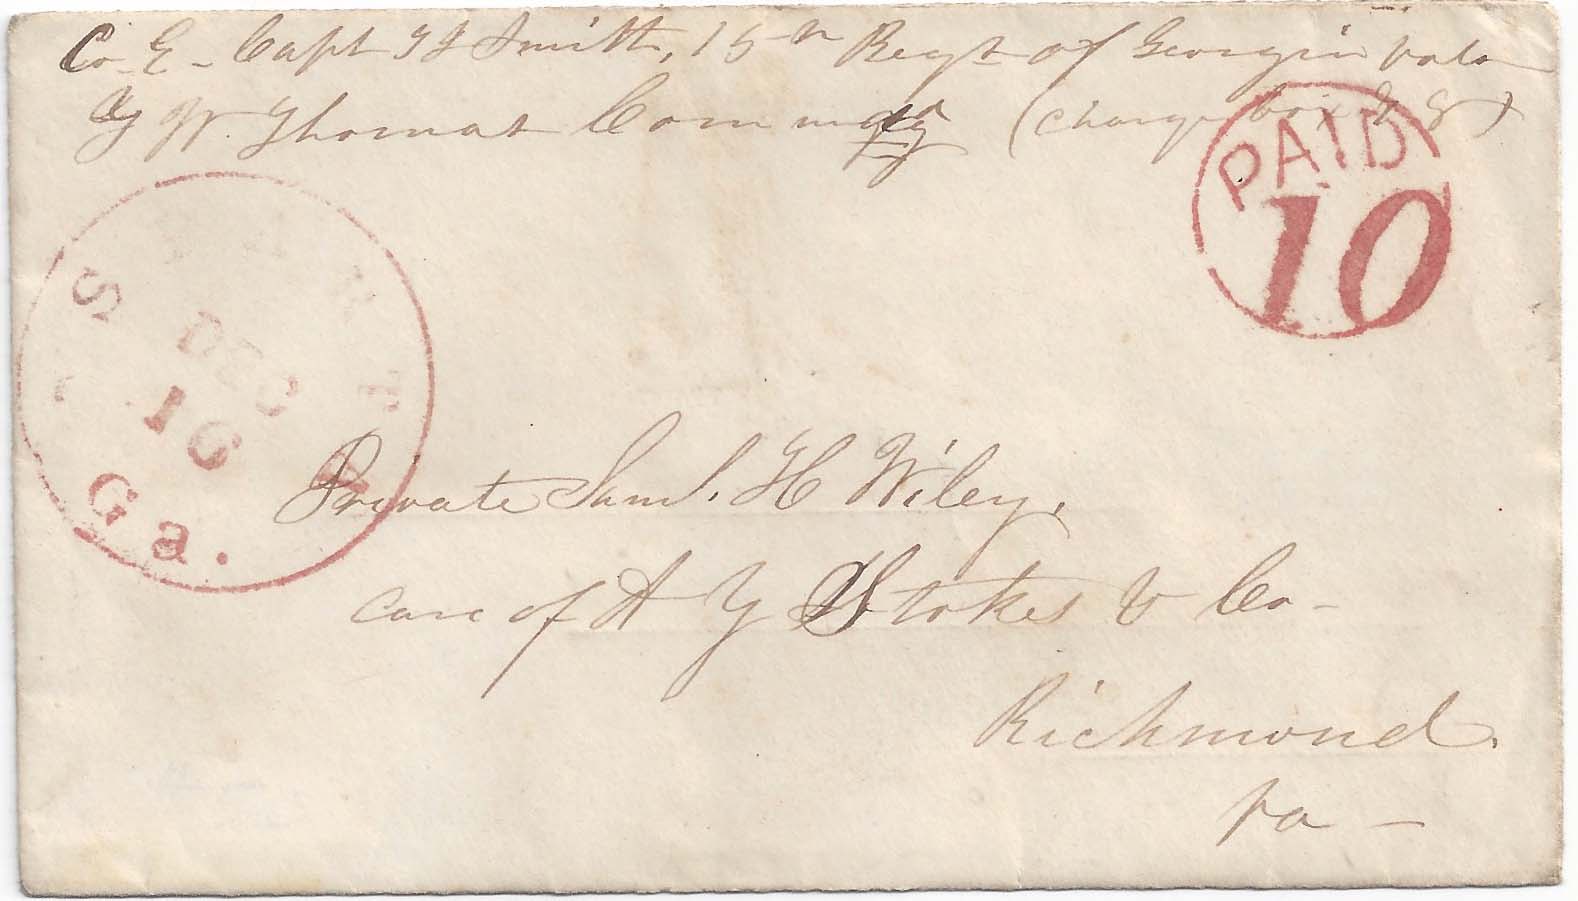 Co. E - Capt T J Smith, 15th Regt of Georgia Vols
W. Thomas Commdg (charge box 78)
PAID
10
S PART
DEC
16
Ga.
Private Saml. H Wiley,
care of A Y Stokes & Co -
Richmond.
Va -